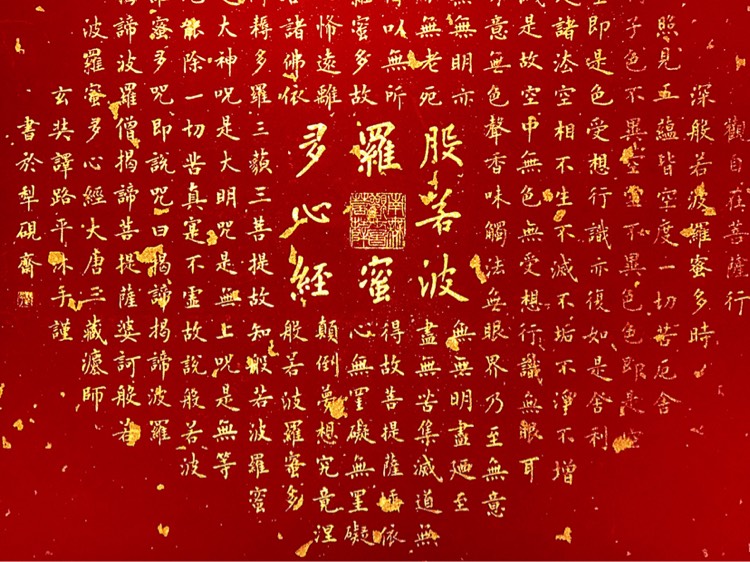 觀自在菩薩行
深般若波羅蜜多時
照見五蘊皆空度一切苦厄舍
子色不異空空不異色色即是空
空即是色受想行識亦復如是舍利
諸法空相不生不滅不垢不淨不增
是故空中無色無受想行識無眼耳
意無色聲香味觸法無眼界乃至無意
無無明亦無無明盡迺至
無老死盡無苦集滅道無
以無所得故菩提薩埵依
蜜多故心無罣礙無罣礙
怖遠離顛倒夢想究竟涅
諸佛依般若波羅蜜多
耨多羅三藐三菩提故知般若波羅蜜
大神咒是大明咒是無上咒是無等
能除一切苦真寔不虛故說般若波
蜜多咒即說咒曰揭諦揭諦波羅
諦波羅僧揭諦菩提薩婆訶般若
波羅蜜多心經大唐三藏灋師
玄奘譯路平沐手謹
書於犁硯齋
般若波
羅蜜
多心經